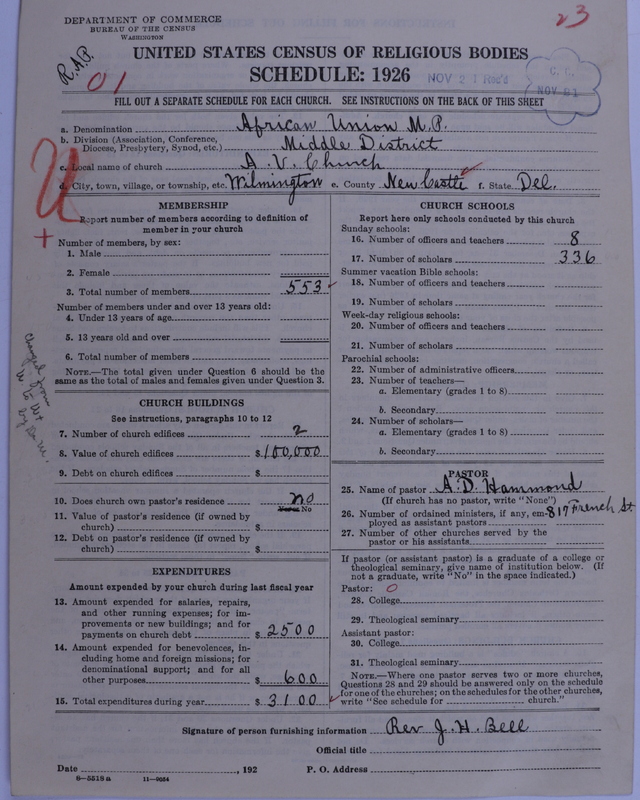 DEPARTMENT OF COMMERCE
BUREAU OF THE CENSUS
WASHINGTON
R.A.P.
01
23
UNITED STATES CENSUS OF RELIGIOUS BODIES
SCHEDULE: 1926
NOV 21 Rec'd
NOV 21
FILL OUT A SEPARATE SCHEDULE FOR EACH CHURCH. SEE INSTRUCTIONS ON THE BACK OF THIS SHEET
a. Denomination African Union M.P.
b. Division (Association, Conference, Diocese, Presbytery, Synod, etc.) Middle District
c. Local name of church A. U. Church
d. City, town, village, or township, etc. Wilmington e. County New Castle f. State Del.
MEMBERSHIP
Report number of members according to definition of
member in your church
Number of members, by sex:
1. Male
2. Female
3. Total number of members 553
Number of members under and over 13 years old:
4. Under 13 years of age
5. 13 years old and over
6. Total number of members
NOTE.—The total given under Question 6 should be
same as the total of males and females given under Question 3.
CHURCH BUILDINGS
See instructions, paragraphs 10 to 12
7. Number of church edifices 2
8. Value of church edifices $100,000
9. Debt on church edifices $
10. Does church own pastor's residence no
Yes or No
11. Value of pastor's residence (if owned by
church) $
12. Debt on pastor's residence (if owned by
church) $
EXPENDITURES
Amount expended by your church during last fiscal year
13. Amount expended for salaries, repairs,
and other running expenses; for im-
provements or new buildings; and for
payments on church debt $2500
14. Amount expended for benevolences, in-
cluding home and foreign missions; for
denominational support; and for all
other purposes $600
15. Total expenditures during year $3100
CHURCH SCHOOLS
Report here only schools conducted by this church
Sunday schools:
16. Number of officers and teachers 8
17. Number of scholars 336
Summer vacation Bible schools:
18. Number of officers and teachers
19. Number of scholars
Week-day religious schools:
20. Number of officers and teachers
21. Number of scholars
Parochial schools:
22. Number of administrative officers
23. Number of teachers—
a. Elementary (grades 1 to 8)
b. Secondary
24. Number of scholars—
a. Elementary (grades 1 to 8)
b. Secondary
PASTOR
25. Name of pastor A. D. Hammond
(If church has no pastor, write "None")
817 French St
26. Number of ordained ministers, if any, em-
ployed as assistant pastors
27. Number of other churches served by the
pastor or his assistants
If pastor (or assistant pastor) is a graduate of a college or
theological seminary, give name of institution below. (If
not a graduate, write "No" in the space indicated.)
Pastor: 0
28. College
29. Theological seminary
Assistant pastor:
30. College
31. Theological seminary
NOTE.—Where one pastor serves two or more churches,
Questions 28 and 29 should be answered only on the schedule
for one of the churches; on the schedules for the other churches,
write "See schedule for church."
Signature of person furnishing information Rev J. H. Bell
Official title
Date , 192 P. O. Address
8—5518a 11—9034